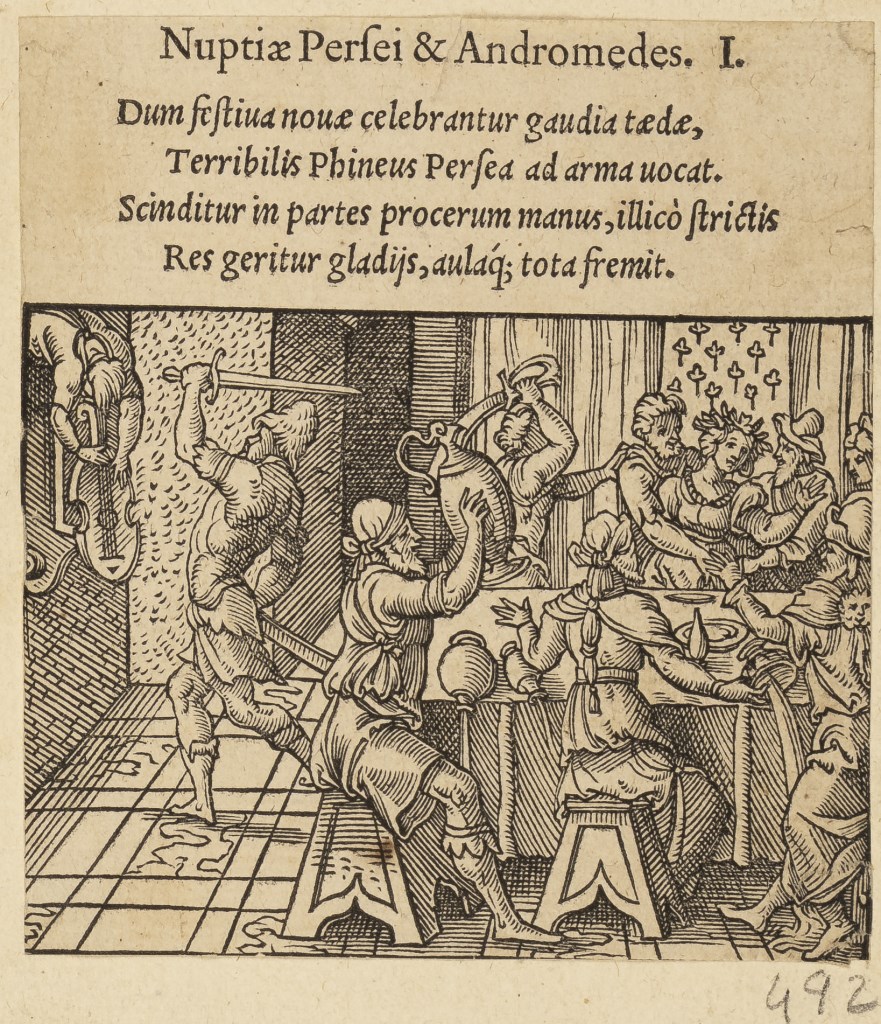 Nuptiæ Perſei & Andromedes. I.
Dum feſtiua nouæ celebrantur gaudia tædæ,
Terribilis Phineus Perſea ad arma uocat.
Scinditur in partes procerum manus, illicò ſtrictis
Res geritur gladijs, aulaq́; tota fremit.
492